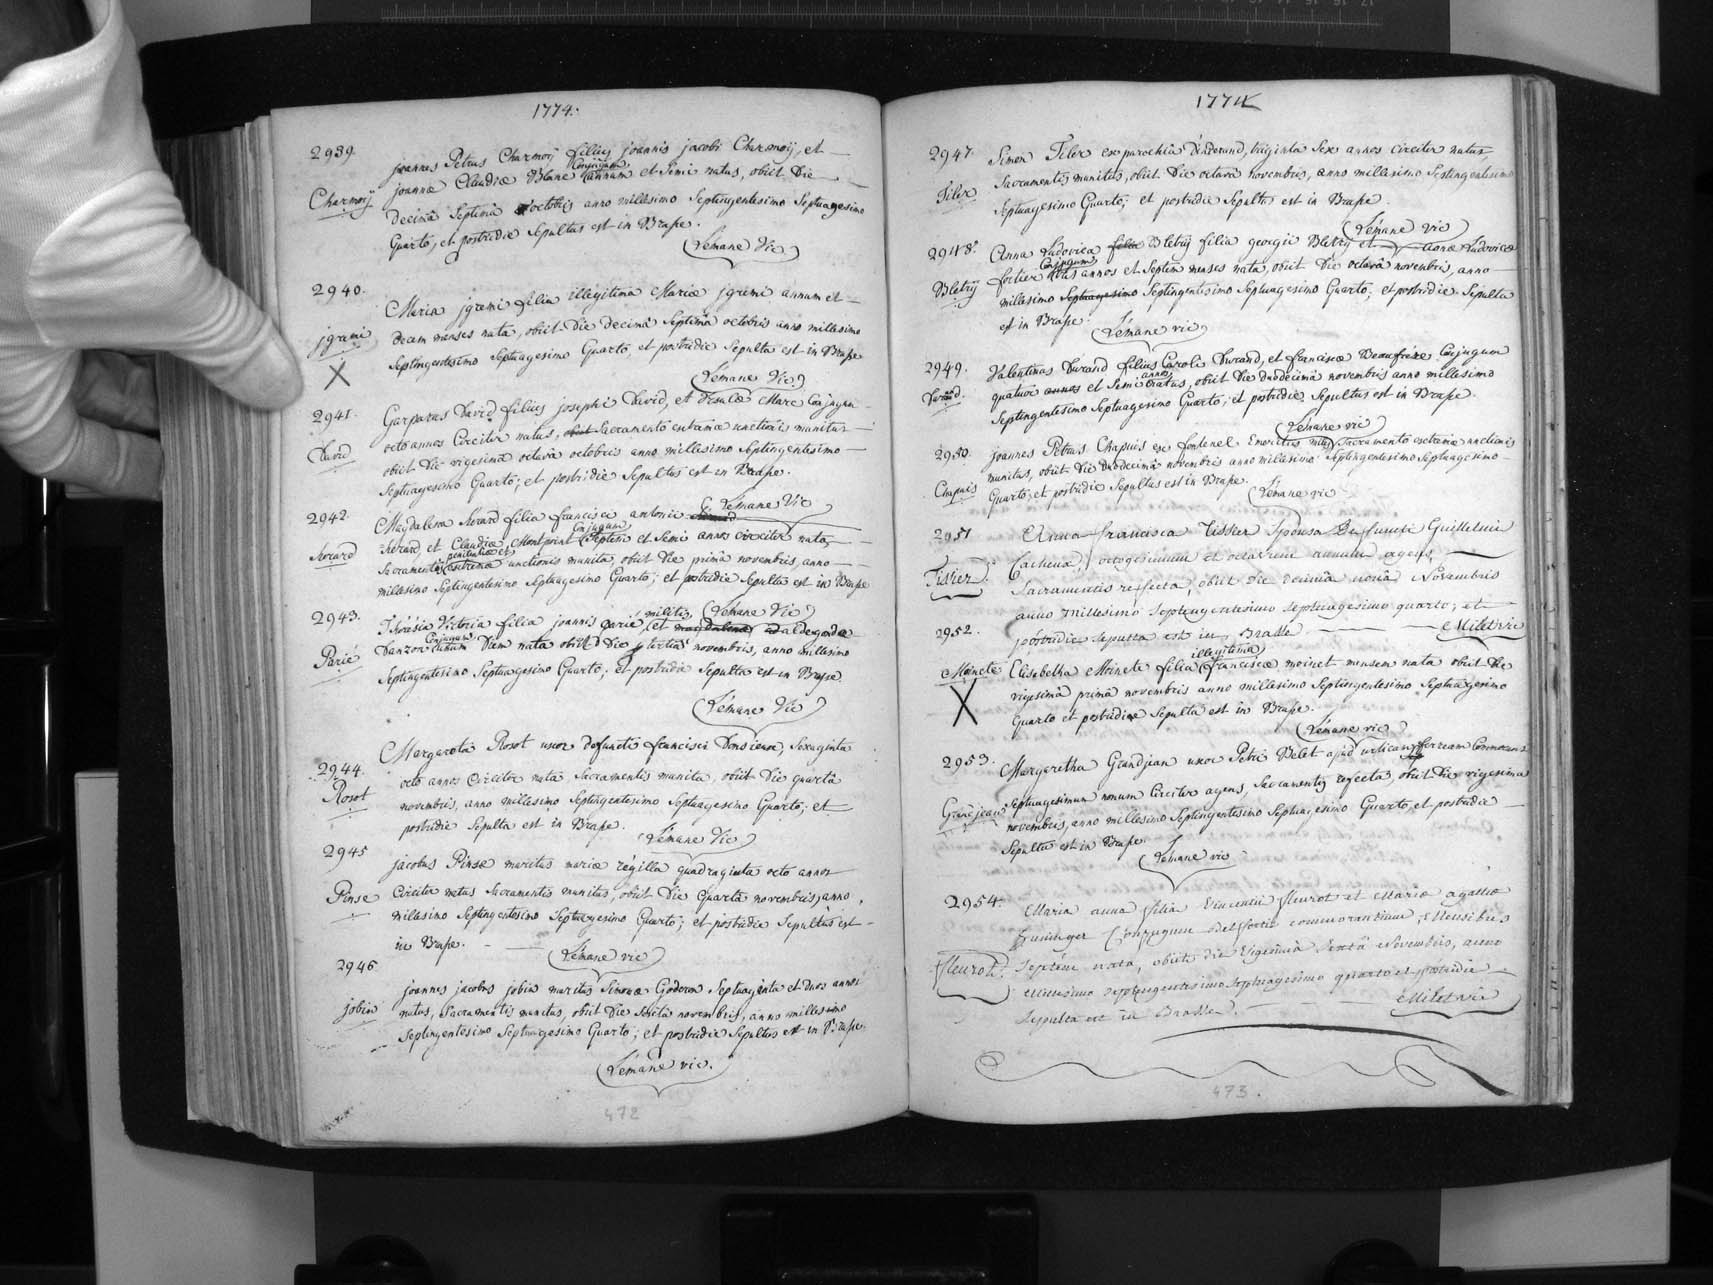 1774.
2939.
Charmoij
joannes Petrus Charmoij filius joannis jacobi Charmoij, et
joannæ Claudiæ Blanc Conjugum annum et Semi natus, obiit Die
decimâ Septimâ octobris anno millesimo Septingentesimo Septuagesimo
Quarto, et postridie Sepultus est in Brasse.
Lémane Vic
2940.
jgremi
X
Maria jgremi filia illegitima Mariæ jgremi annum et
decem menses nata, obiit Die decimâ Septimâ octobris anno millesimo
Septingentesimo Septuagesimo Quarto et postridie Sepulta est in Brasse
Lémane Vic
2941.
David
Gasparus David filius josephi David, et Ursulæ Marc Conjugum
octo annos Circiter natus, obiit Sacramento extremæ unctionis munitus
obiit Die vigesimâ octavâ octobris anno millesimo Septingentesimo
Septuagesimo Quarto; et postridie Sepultus est in Brasse.
Lémane Vic
2942.
herard
Magdalena herard filia francisci antonii
herard, et Claudiæ Montprint Conjugum Septem et Semi annos circiter nata,
Sacramentis pœnitentiæ et extremæ unctionis munita, obiit Die primâ novembris, anno
millesimo Septingentesimo Septuagesimo Quarto; et postridie Sepulta est in Brasse
Lémane Vic
2943.
Parié
Théresia Victoria filia joannis parié militis, et magdalenæ aldegondæ
Danzon Conjugum unum Diem nata obiit Die tertiâ novembris, anno millesimo
Septingentesimo Septuagesimo Quarto; et postridie Sepulta est in Brasse.
Lémane Vic
2944.
Rosot
Margareta Rosot uxor defuncti francisci Donsieux, Sexaginta
octo annos Circiter nata Sacramentis munita, obiit Die quartâ
novembris, anno millesimo Septingentesimo Septuagesimo Quarto; et
postridie Sepulta est in Brasse.
Lémane Vic
2945
Pinse
jacobus Pinse maritus mariæ régilla quadraginta octo annos
Circiter natus Sacramentis munitus, obiit Die Quartâ novembris, anno
millesimo Septingentesimo Septuagesimo Quarto; et postridie Sepultus est
in Brasse.
Lémane vic
2946
jobin
joannes jacobus jobin maritus Simonæ Goderon Septuaginta et duos annos
natus, Sacramentis munitus, obiit Die Sextâ novembris, anno millesimo
Septingentesimo Septuagesimo Quarto; et postridie Sepultus est in Brasse.
Lémane vic.
472
1774
2947.
Tiler
Simon Tiler ex parochiâ Dinderand, triginta Sex annos circiter natus,
Sacramentis munitus, obiit Die octavâ novembris, anno millesimo Septingentesimo
Septuagesimo Quarto; et postridie Sepultus est in Brasse.
Lémane vic
2948.
Bletrij
Anna Ludovica filia Bletrij filia georgii Bletrij et annæ Ludovicæ
fortier Conjugum tres annos et Septem menses nata, obiit Die octavâ novembris, anno
millesimo Septuagesimo Septingentesimo Septuagesimo Quarto; et postridie Sepulta
est in Brasse.
Lémane vic
2949.
Durand.
Valentinus Durand filius Caroli Durand, et franciscæ Beaufrére Conjugum
quatuor annos et Semi annos natus, obiit Die duodecimâ novembris anno millesimo
Septingentesimo Septuagesimo Quarto; et postridie Sepultus est in Brasse.
Lémane vic
2950.
Chapuis
joannes Petrus Chapuis ex fontenel Emeritus miles Sacramento extremæ unctionis
munitus, obiit Die duodecimâ novembris anno millesimo Septingentesimo Septuagesimo
Quarto; et postridie Sepultus est in Brasse.
Lémane vic
2951
Tissier
Anna francisca Tissier Sponsa Defuncti Guillelmi
Cacheux, octogesimum et octavum annum agens,
Sacramentis refecta, obiit die decimâ nonâ Novembris
anno millesimo septengentesimo septuagesimo quarto; et
postridie sepulta est in Brasse.
Milet vic
2952.
Moinete
X
Elisabetha Moinete filia illegitima franciscæ moinet mensem nata obiit Die
vigesimâ primâ novembris anno millesimo Septingentesimo Septuagesimo
Quarto et postridie Sepulta est in Brasse.
Lémane vic
2953.
Grandjean
Margaretha Grandjean uxor Petri Belet apud urticam ferream Commorans
Septuagesimum nonum Circiter agens, Sacramentis refecta, obiit Die vigesima
novembris, anno millesimo Septingentesimo Septuagesimo Quarto, et postridie
Sepulta est in Brasse.
Lémane vic
2954.
fleurot.
Maria anna filia Vincentii fleurot et Mariæ agathæ
Huninger Conjugum Belfortii commorantium, Mensibus
Septem nata, obiit die Vigesimâ Sextâ Novembris, anno
Millesimo septengentesimo septuagesimo quarto et postridie
sepulta est in Brasse.
Milet vic
473.